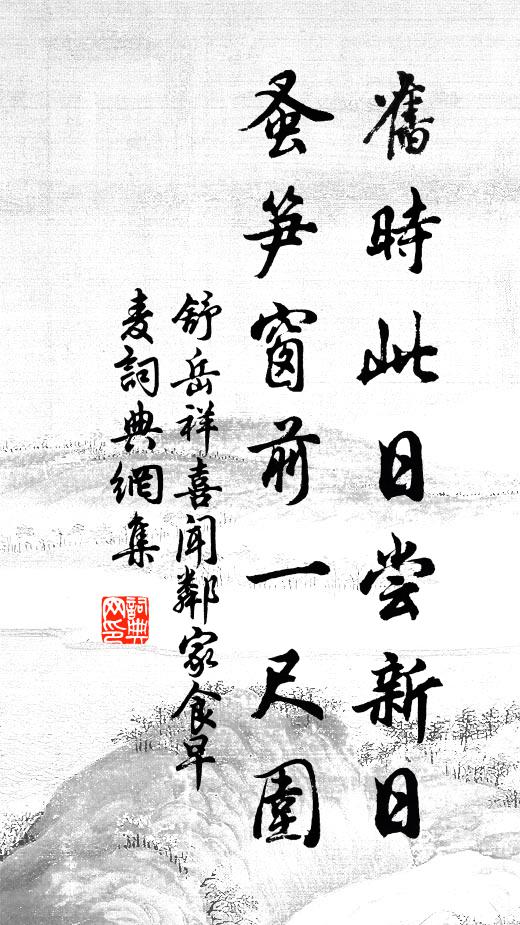 舊時此日嘗新日
蚕笋窗前一尺圍
舒岳祥喜聞鄰家食早
麦詞典網集
詞典
网印